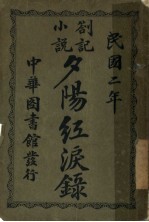 民國二年
劄記
小説
夕陽紅淚錄
中華圖書館發行